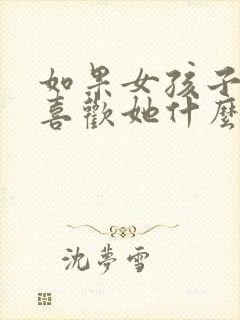 如果女孩子
喜歡她什麼
沈夢雪